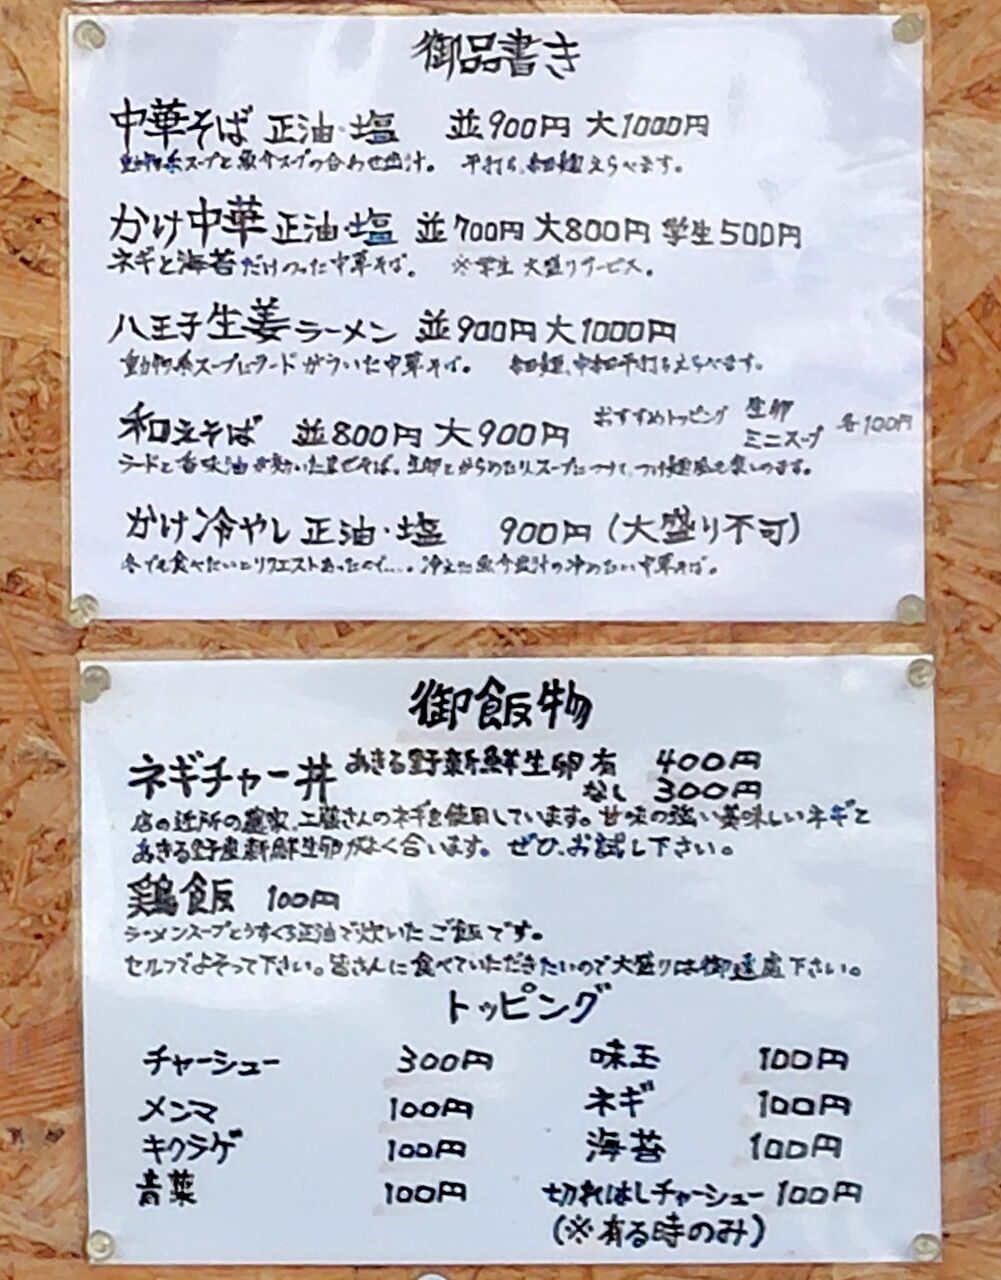 御品書き
中華そば 正油・塩 並900円 大1000円
動物系スープと魚介スープの合わせ出汁。 平打ち、細麺えらべます。
かけ中華 正油・塩 並700円 大800円 学生500円
ネギと海苔だけのった中華そば。 ※学生 大盛りサービス。
八王子生姜ラーメン 並900円 大1000円
動物系スープにラードがういた中華そば。 細麺、中細平打ちえらべます。
和えそば 並800円 大900円 おすすめトッピング 生卵 ミニスープ 各100円
ラードと香味油が効いた混ぜそば。生卵とからめたりスープにつけてつけ麺風も楽しめます。
かけ冷やし 正油・塩 900円 (大盛り不可)
冬でも食べたいとリクエストあったので....。冷えた魚介出汁の冷めたい中華そば。
御飯物
ネギチャー丼 あきる野新鮮生卵 有 400円
なし 300円
店の近所の農家、工藤さんのネギを使用しています。甘味の強い美味しいネギと
あきる野産新鮮生卵がよく合います。ぜひ、お試し下さい。
鶏飯 100円
ラーメンスープとうすくち正油で炊いたご飯です。
セルフでよそって下さい。皆さんに食べていただきたいので大盛りは御遠慮下さい。
トッピング
チャーシュー 300円 味玉 100円
メンマ 100円 ネギ 100円
キクラゲ 100円 海苔 100円
青菜 100円 切れはしチャーシュー 100円
(※有る時のみ)